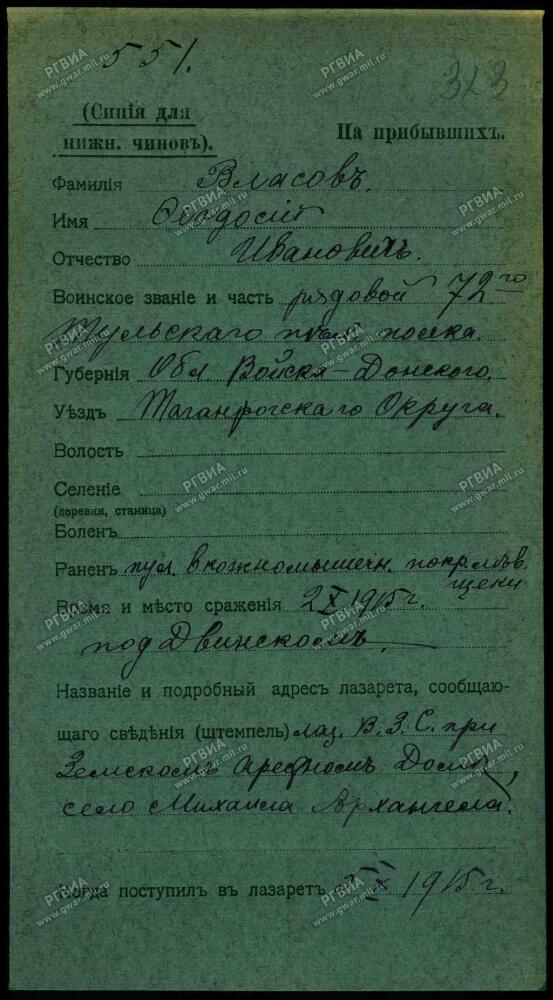 551.
323
(Синія для
нижн. чиновъ).
На прибывшихъ.
Фамилія Власовъ.
Имя Ѳеодосій
Отчество Ивановичъ.
Воинское званіе и часть рядовой 72го
Тульскаго полка.
Губернія Обл. Войска-Донского.
Уѣздъ Таганрогскаго Округа.
Волость
Селеніе
(деревня, станица)
Боленъ
Раненъ пул. в кожномышечн. покр. лѣв.
щеки
Время и мѣсто сраженія 2 X 1915 г.
под Двинскомъ.
Названіе и подробный адресъ лазарета, сообщаю-
щаго свѣдѣнія (штемпель) Лаз. В. З. С. при
Земскомъ Арестномъ Домѣ,
село Михаила Архангела.
Когда поступил въ лазаретъ 1915 г.
РГВИА
www.gwar.mil.ru